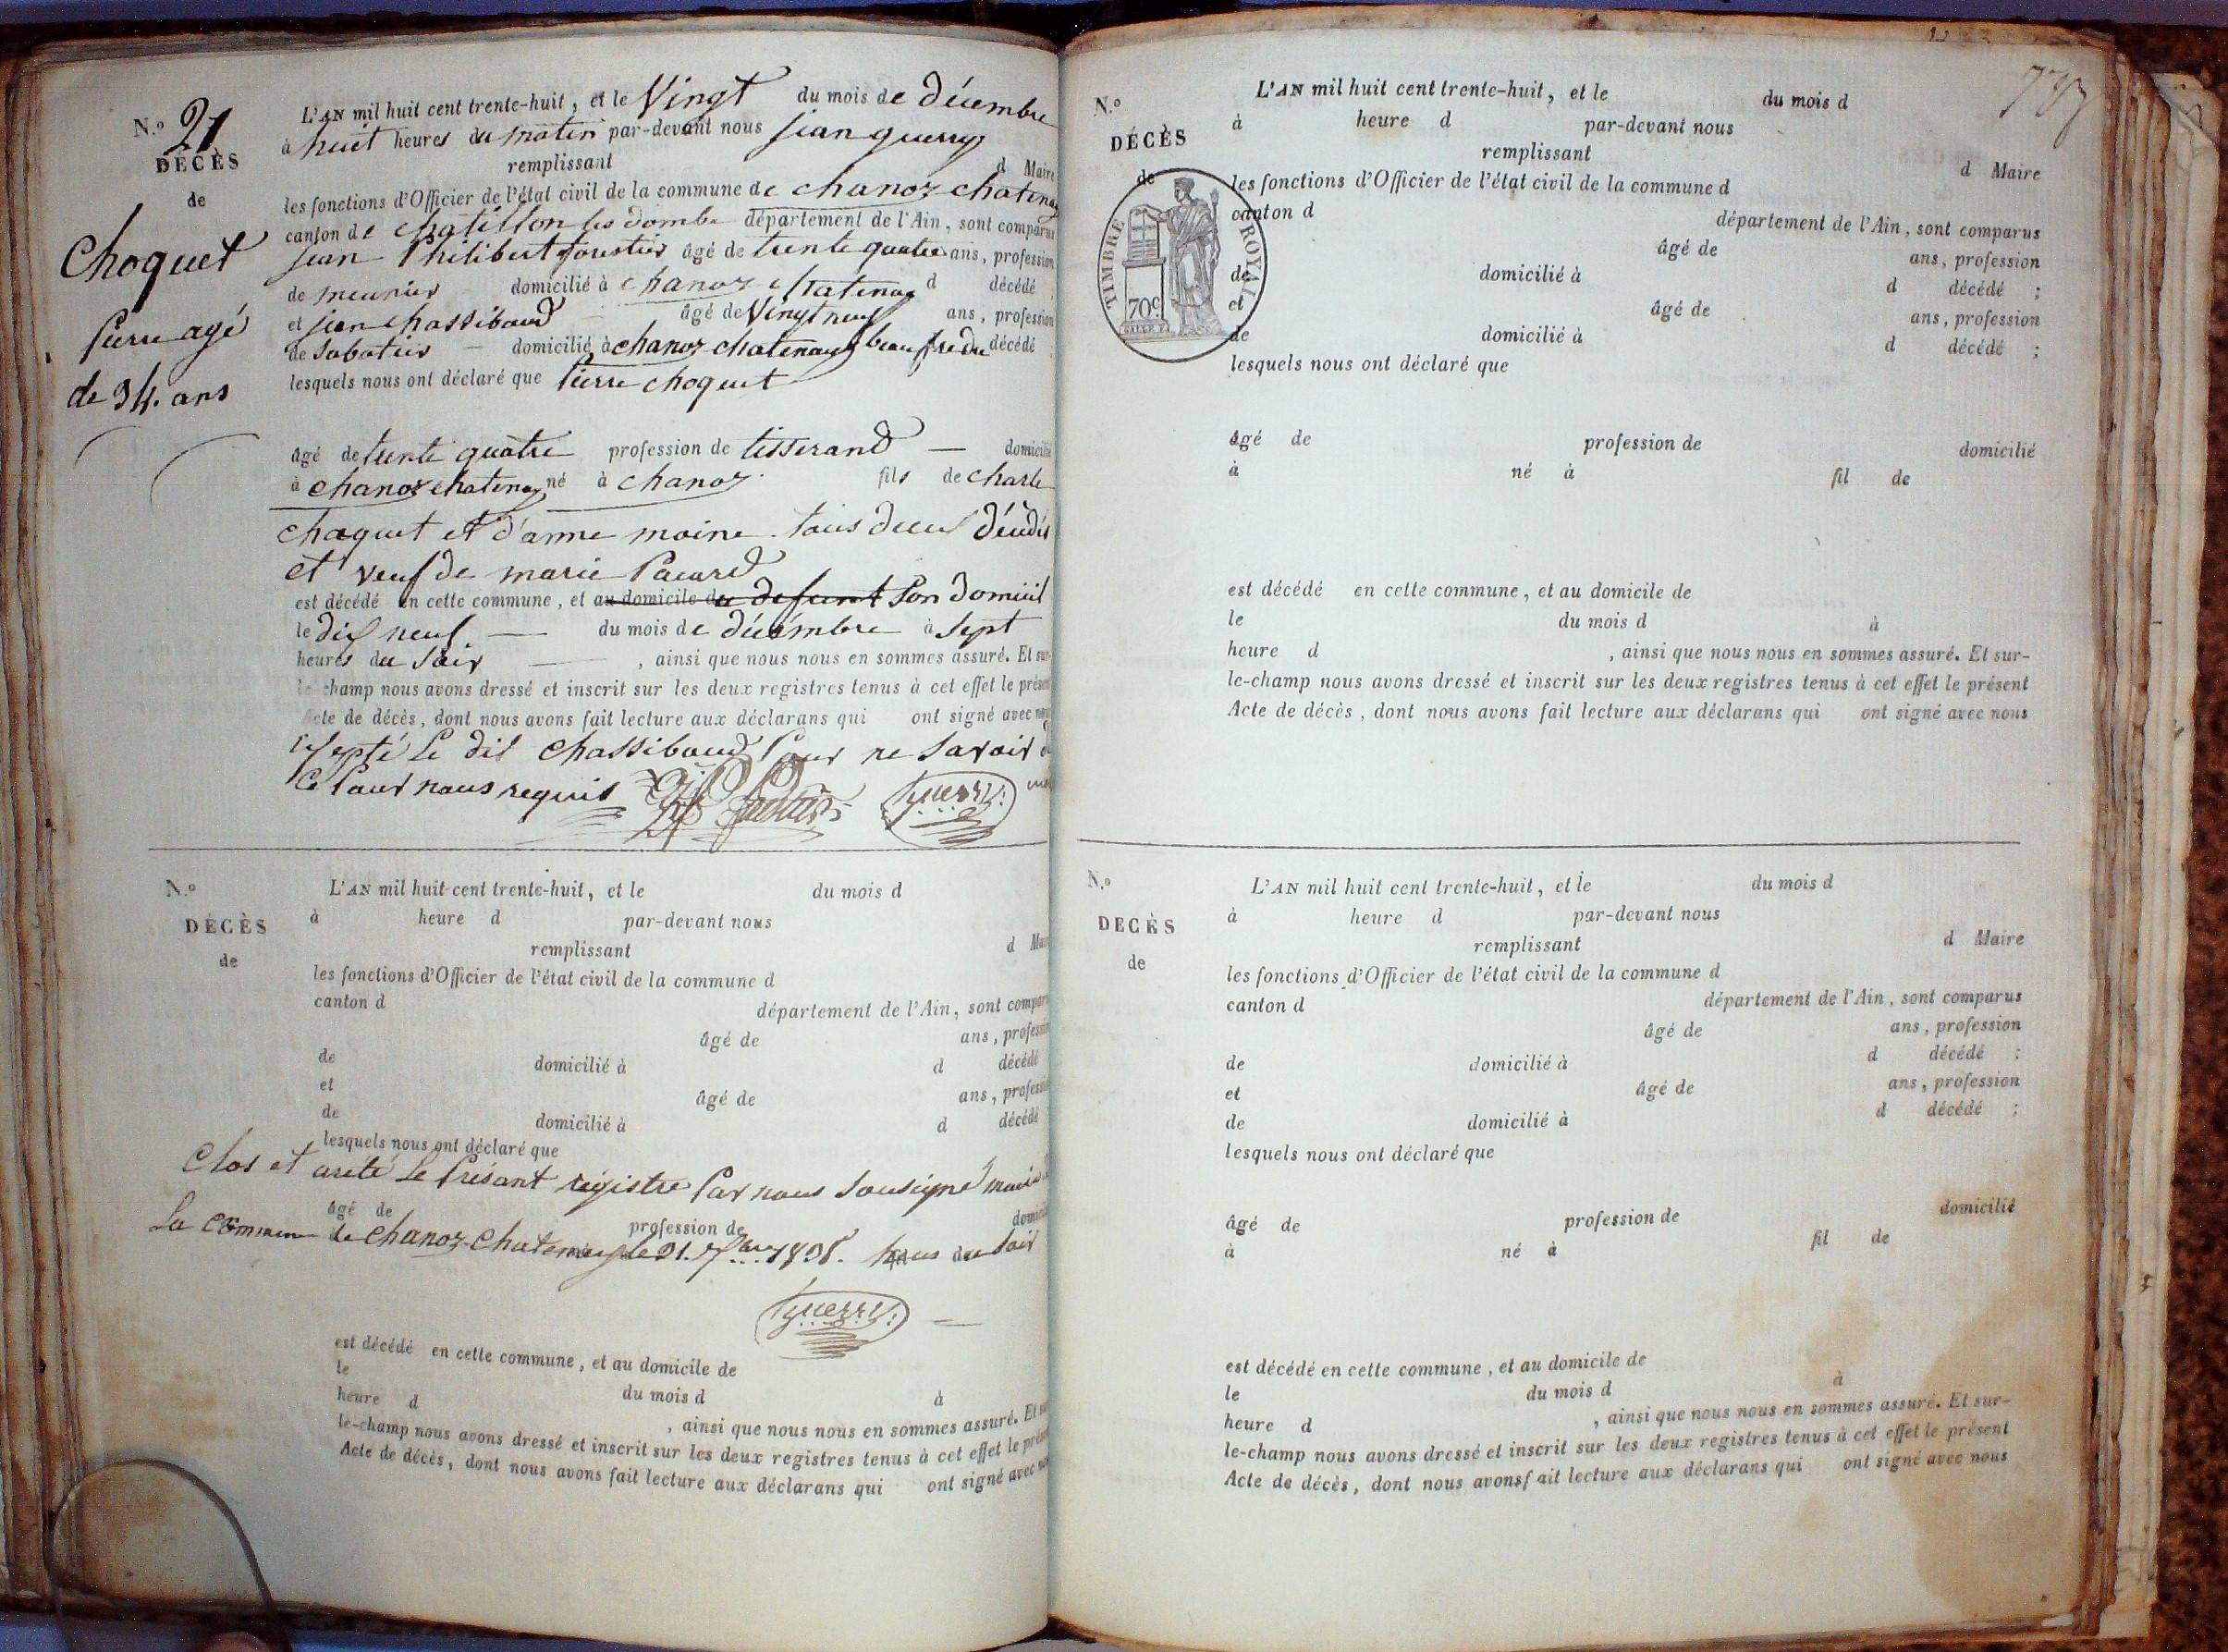 N.º 21
DÉCÈS
de
Choquet
Pierre agé
de 34. ans
L'AN mil huit cent trente-huit, et le Vingt du mois de décembre
à huit heures du matin par-devant nous jean guerry
remplissant d Maire
les fonctions d'Officier de l'état civil de la commune de chanoz chatenay
canton de chatillon les dombe département de l'Ain, sont comparus
jean Philibert âgé de trente quatre ans, profession
de meunier domicilié à chanoz chatenay d décédé
et jean chassibaud âgé de Vingt neuf ans, profession
de Sabotier — domicilié à chanoz chatenay beau frere du décédé
lesquels nous ont déclaré que Pierre choquet
âgé de trente quatre profession de tisserand — domicilié
à chanoz chatenay né à chanoz fils de charle
choquet et d'anne moine tous deux décédés
et veuf de marie Pacard
est décédé en cette commune, et au domicile du defunt Son Domicil
le dix neuf — du mois de décémbre à Sept
heures du Soir — , ainsi que nous nous en sommes assuré. Et sur-
le champ nous avons dressé et inscrit sur les deux registres tenus à cet effet le présent
Acte de décès, dont nous avons fait lecture aux déclarans qui ont signé avec nous
le dit chassibaud Pour ne Savoir
ce Pour nous requis
guerry
N.º
DÉCÈS
de
L'AN mil huit cent trente-huit, et le du mois d
à heure d par-devant nous
remplissant d Maire
les fonctions d'Officier de l'état civil de la commune d
canton d département de l'Ain, sont comparus
âgé de ans, profession
de domicilié à d décédé
et âgé de ans, profession
de domicilié à d décédé
lesquels nous ont déclaré que
Clos et areté le Présant registre Par nous Sousigné maire
âgé de profession de domicilié
La commune de Chanoz-Chatenay le 31. Xbre 1838. du Soir
guerry
est décédé en cette commune, et au domicile de
le du mois d à
heure d , ainsi que nous nous en sommes assuré. Et sur-
le-champ nous avons dressé et inscrit sur les deux registres tenus à cet effet le présent
Acte de décès, dont nous avons fait lecture aux déclarans qui ont signé avec nous
N.º
DÉCÈS
de
TIMBRE ROYAL
70 c.
L'AN mil huit cent trente-huit, et le du mois d
à heure d par-devant nous
remplissant d Maire
les fonctions d'Officier de l'état civil de la commune d
canton d département de l'Ain, sont comparus
âgé de ans, profession
de domicilié à d décédé ;
et âgé de ans, profession
de domicilié à d décédé ;
lesquels nous ont déclaré que
âgé de profession de domicilié
à né à fil de
est décédé en cette commune, et au domicile de
le du mois d à
heure d , ainsi que nous nous en sommes assuré. Et sur-
le-champ nous avons dressé et inscrit sur les deux registres tenus à cet effet le présent
Acte de décès, dont nous avons fait lecture aux déclarans qui ont signé avec nous
N.º
DÉCÈS
de
L'AN mil huit cent trente-huit, et le du mois d
à heure d par-devant nous
remplissant d Maire
les fonctions d'Officier de l'état civil de la commune d
canton d département de l'Ain, sont comparus
âgé de ans, profession
de domicilié à d décédé :
et âgé de ans, profession
de domicilié à d décédé ;
lesquels nous ont déclaré que
âgé de profession de domicilié
à né à fil de
est décédé en cette commune, et au domicile de
le du mois d à
heure d , ainsi que nous nous en sommes assuré. Et sur-
le-champ nous avons dressé et inscrit sur les deux registres tenus à cet effet le présent
Acte de décès, dont nous avons fait lecture aux déclarans qui ont signé avec nous